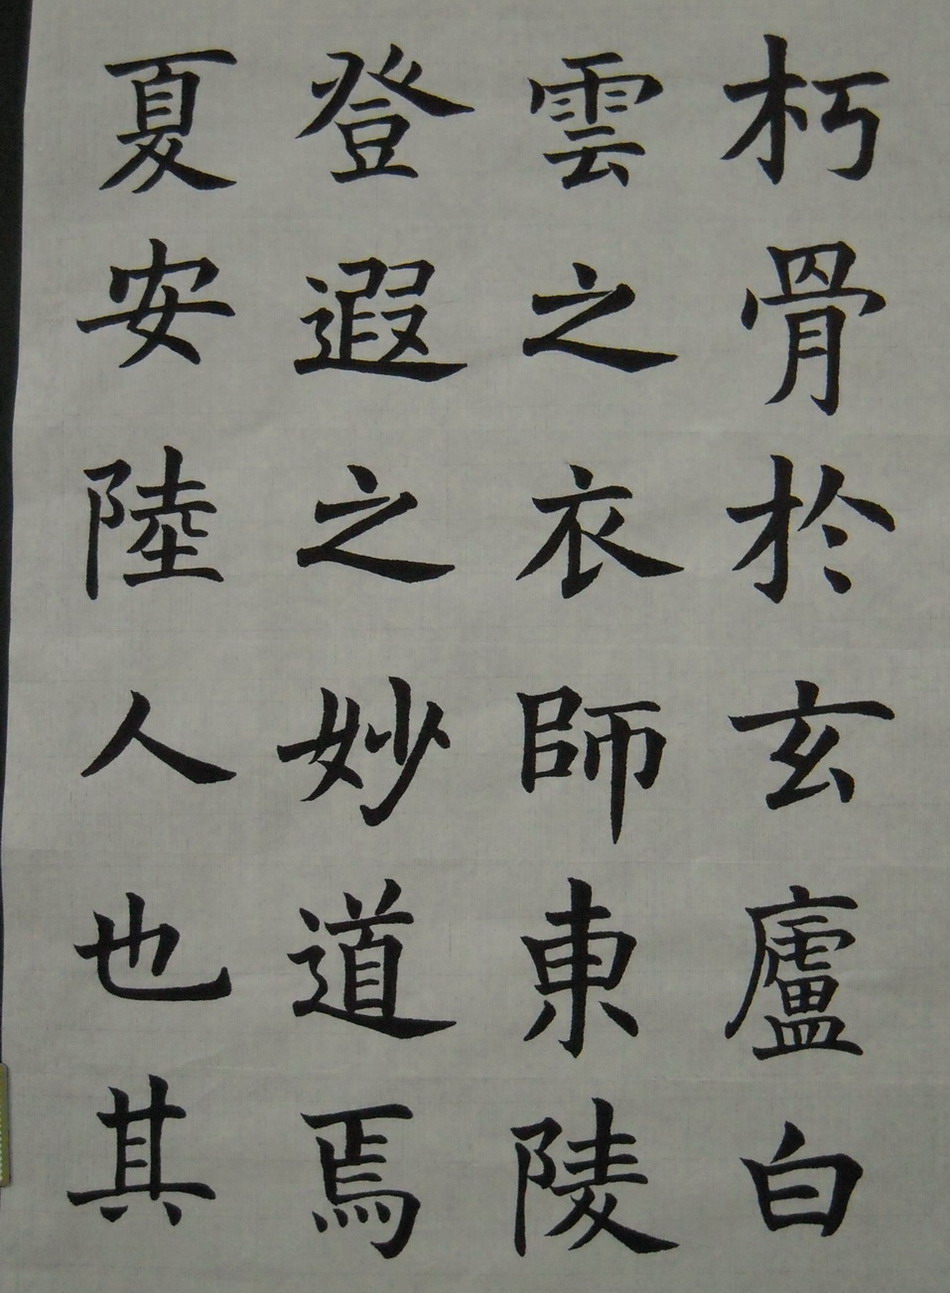 朽骨於玄廬白
雲之衣師東陵
登遐之妙道焉
夏安陸人也其